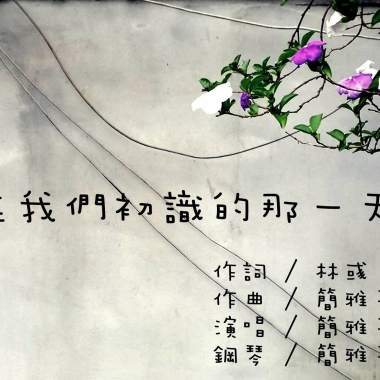 我們初識的那一
作詞 / 林彧
作曲 / 簡雅
演唱 / 簡雅
鋼琴 / 簡雅